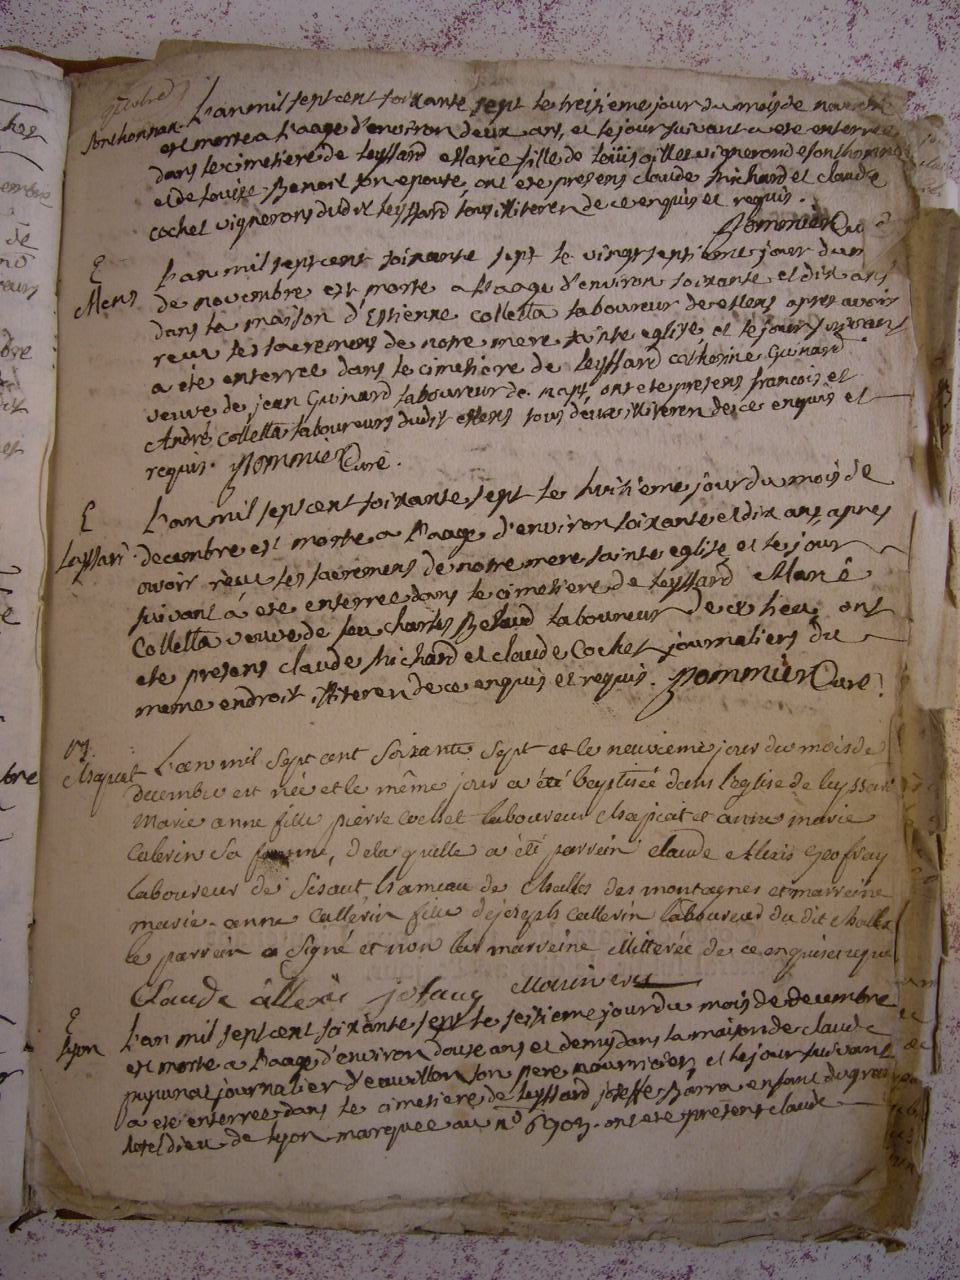 L'an mil sept cent soixante sept le treisieme jour du mois de novembre
Sonthonnax. est morte a l'aage d'environ deux ans, et le jour suivant a eté enterrée
dans le cimetiere de leyssard Marie fille de vigneron de sonthonnax
et de louise Benoit son epouse, ont eté presens claude Michard et claude
cochet vignerons dudit leyssard tous illiteren de ce enquis et requis.
pommier Curé
E L'an mil sept cent soixante sept le vingt septieme jour du m
Mens de novembre est morte a l'aage d'environ soixante et dix ans
dans la maison d'Estienne Colletta laboureur de Mens apres avoir
reçu les sacremens de notre mere sainte eglise, et le jour suivant
a eté enterrée dans le cimetiere de leyssard catherine Guinard
veuve de jean Guinard laboureur de ont eté presens francois et
André Colletta laboureurs dudit Mens tous deux illiteren de ce enquis et
requis. pommier Curé.
E L'an mil sept cent soixante sept le huitieme jour du mois de
Leyssard. decembre est morte a l'aage d'environ soixante et dix ans, apres
avoir reçu les sacremens de notre mere sainte eglise et le jour
suivant a eté enterrée dans le cimetiere de leyssard Marie
Colletta veuve de feu charles laboureur de ce lieu, ont
eté presens claude Michard et claude Cochet journaliers du
meme endroit illiteren de ce enquis et requis. pommier Curé.
Chapiat L'an mil sept cent soixante sept et le neuvieme jour du mois de
decembre est née et le même jour a été baptisée dans l'eglise de leyssard
marie anne fille pierre cochet laboureur Chapiat et anne marie
callerin sa femme, de laquelle a été parrein claude Alexis Geofray
laboureur de hameau de Challes des montagnes et marreine
marie-anne callerin fille de joseph callerin laboureur du dit Challes
le parrein a signé et non la marreine illitterée de ce enquise et requise
Claude allexis
E L'an mil sept cent soixante sept le seisieme jour du mois de decembre
Lyon est morte a l'aage d'environ douse ans et demy dans la maison de claude
journalier d'eauvillon son pere nourricier, et le jour suivant
a eté enterrée dans le cimetiere de leyssard joseffe Barra enfant du grand
hotel dieu de lyon marquée au n° ont eté presens claude